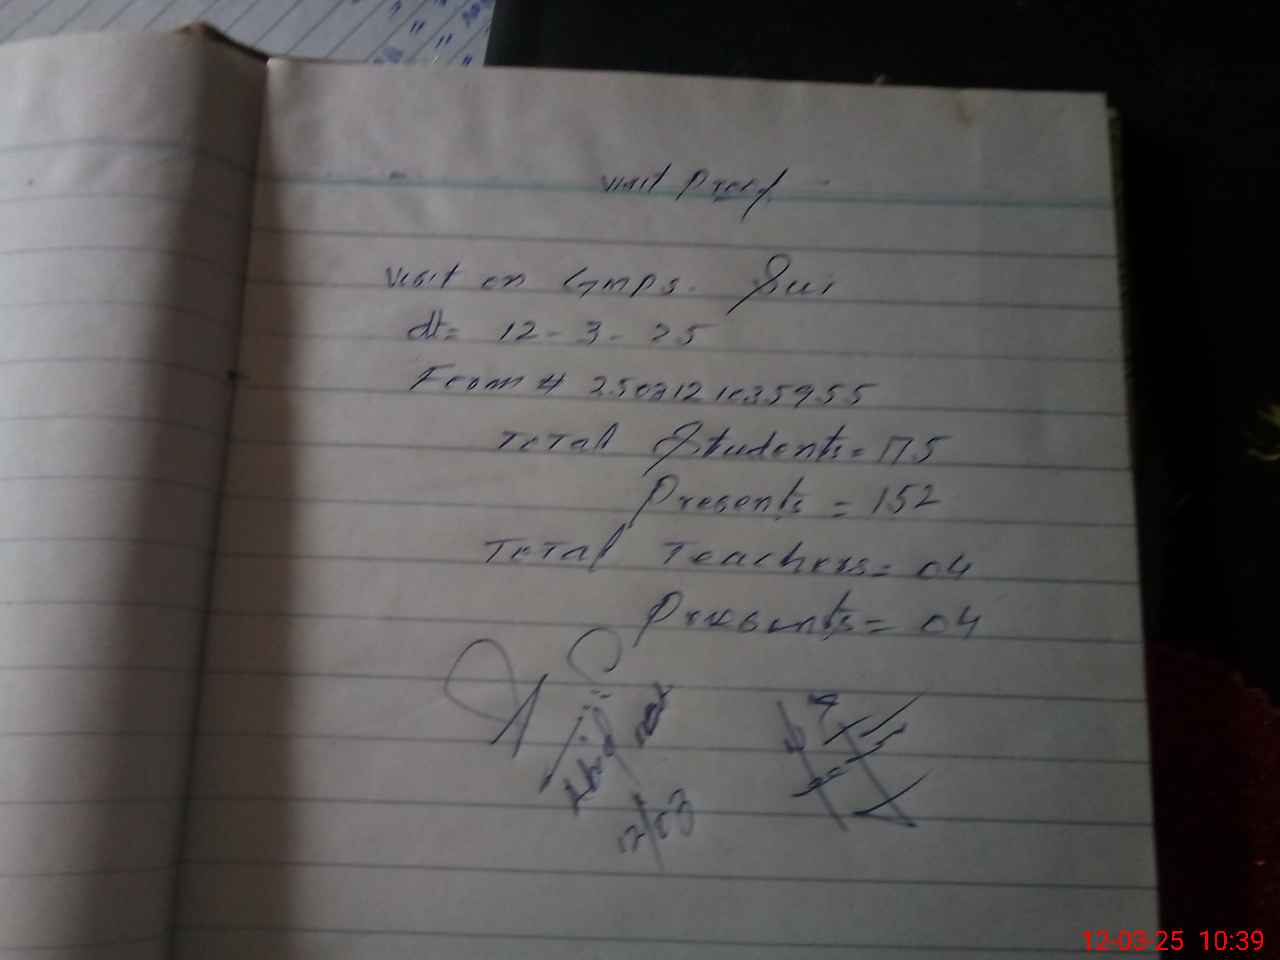 Visit Proof
Visit on GMPS. Sui
dt= 12-3-25
From # 2503121035955
Total Students = 175
Presents = 152
Total Teachers = 04
Presents = 04
12/03
12-03-25 10:39